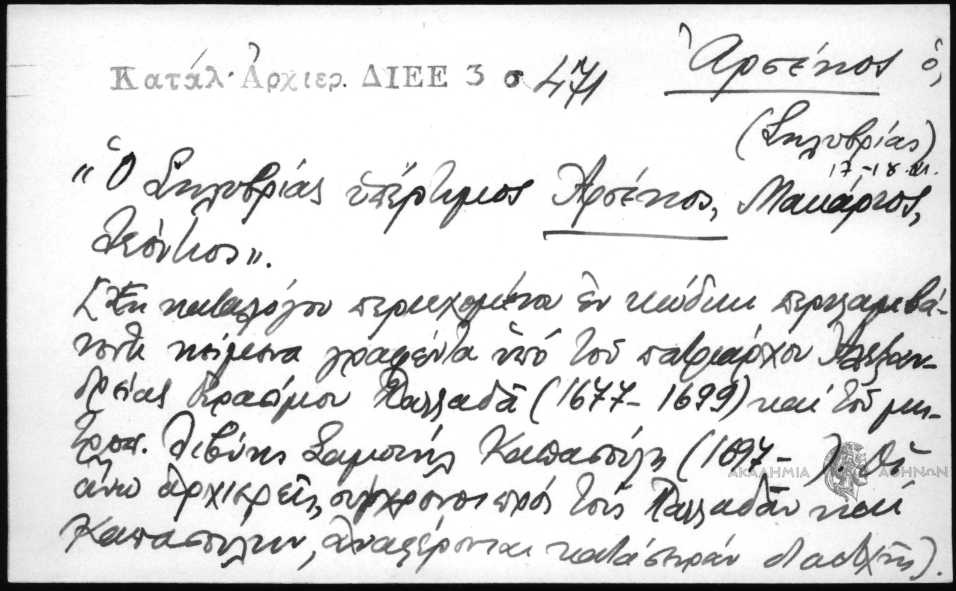 Κατάλ. Ἀρχιερ. ΔΙΕΕ 3 σ 471
Ἀρσένιος ὁ,
(Σηλυβρίας)
17-18 αι.
"Ὁ Σηλυβρίας ὑπέρτιμος Ἀρσένιος, Μακάριος,
Λεόντιος".
[Ἐκ καταλόγου περιεχομένου ἐν κώδικι περιλαμβά-
νοντι κείμενα γραφέντα ὑπό τοῦ πατριάρχου Ἀλεξαν-
δρείας Γερασίμου Παλλαδᾶ (1677-1699) καί τοῦ μη-
τροπ. Λιβύης Σαμουήλ Καπασούλη (1697- ). Οἱ
ἄνω ἀρχιερεῖς, σύγχρονοι πρός τούς Παλλαδᾶν καί
Καπασούλην, ἀναφέρονται κατά σειράν διαδοχῆς).
ΑΚΑΔΗΜΙΑ ΑΘΗΝΩΝ